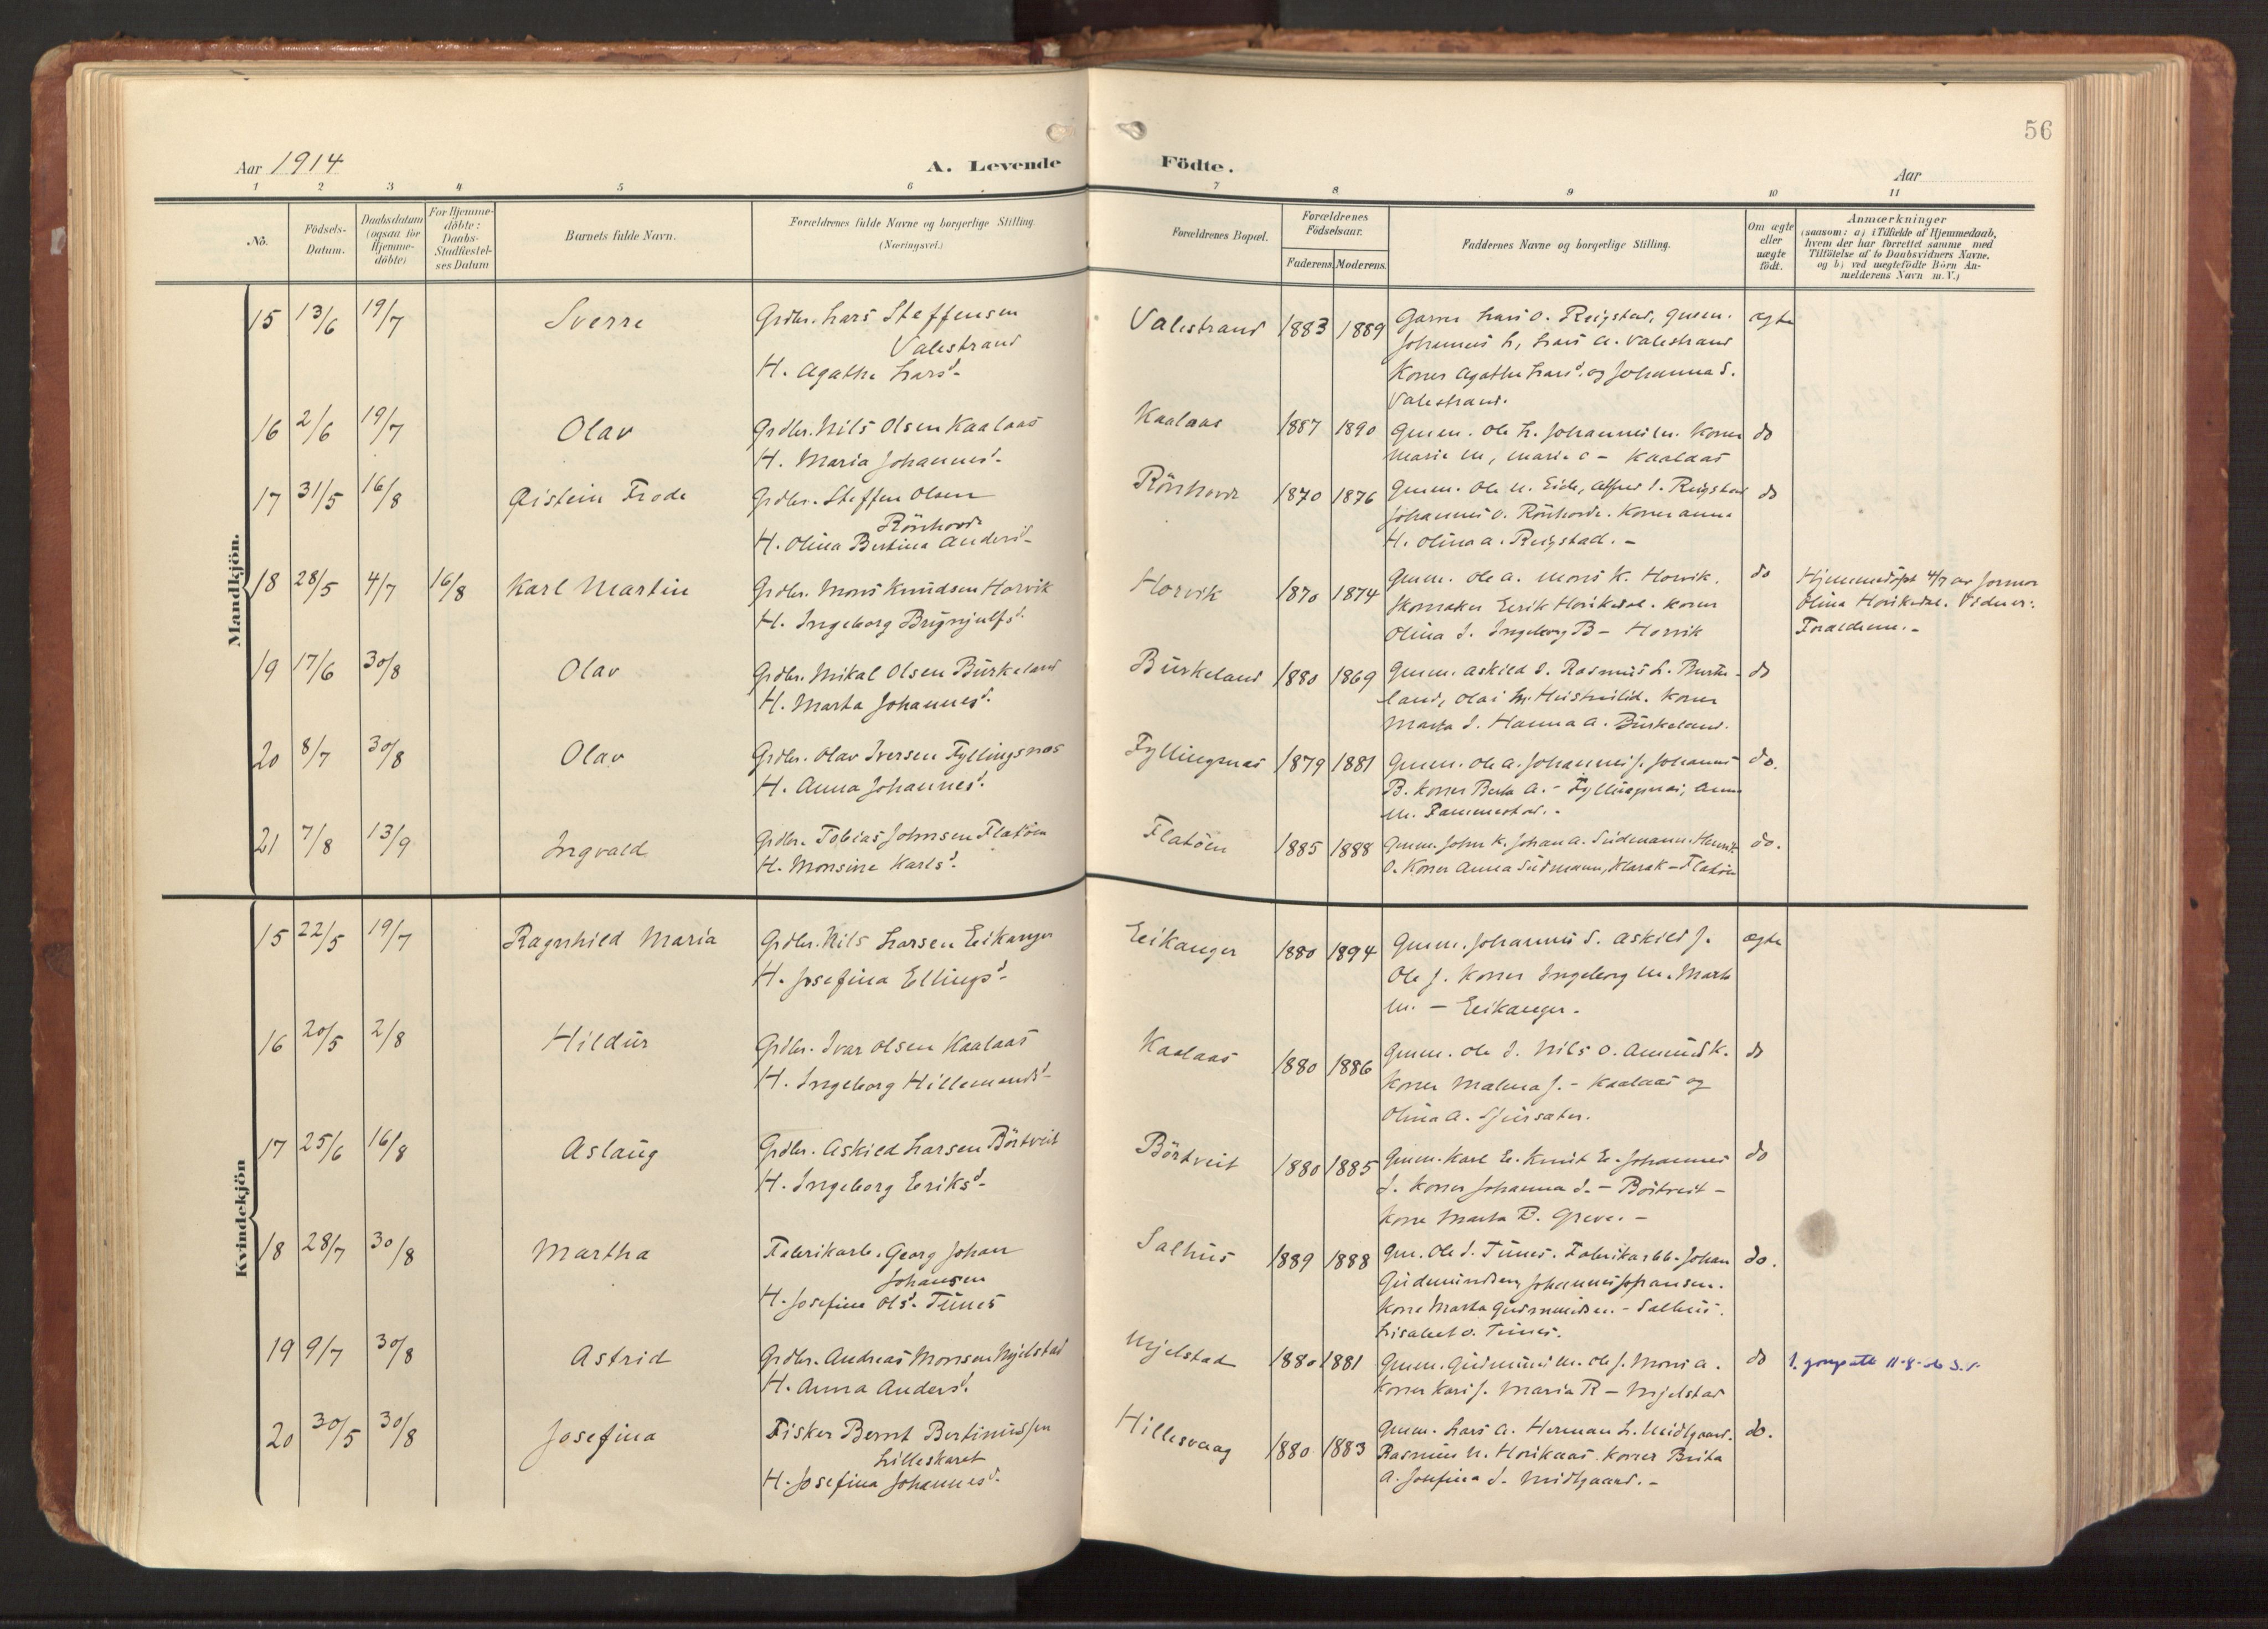 56
Aar 1914
A. Levende Födte.
Aar
1 2 3 4 5 6 7 8 9 10 11
No.
Födsels-
Datum.
Daabsdatum
(ogsaa for
Hjemme-
döbte)
For Hjemme-
döbte:
Daabs-
Stadfæstel-
ses Datum
Barnets fulde Navn.
Forældrenes fulde Navne og borgerlige Stilling
(Næringsvei.)
Forældrenes Bopæl.
Forældrenes
Födselsaar.
Faderens. Moderens.
Faddernes Navne og borgerlige Stilling.
Om ægte
eller
uægte
födt.
Anmærkninger
(saasom: a) i Tilfælde af Hjemmedaab,
hvem der har forrettet samme med
Tilföielse af to Daabsvidners Navne.
og b) ved uægtefödte Börn An-
melderens Navn m. V.)
Mandkjön.
15 13/6 19/7 Sverre Grdbr. Lars Steffensen
Valestrand
H. Agatha Larsd.
Valestrand 1883 1889 Lars O. Reigstad, gmm.
Johannes L, Lars A. Valestrand
Koner Agatha Larsd. og Johanna S.
Valestrand.
ægte
16 2/6 19/7 Olav Grdbr. Nils Olsen Kaalaas
H. Maria Johannesd.
Kaalaas 1887 1890 Gmm. Ole L. Johannes M. Koner
Marie M, Marie O - Kaalaas
do
17 31/5 16/8 Øistein Frode Grdbr. Steffen Olsen
Rönhovde
H. Olina Bertina Andersd.
Rönhovde 1870 1876 Gmm. Ole N. Eide, Alfred I. Reigstad
Johannes O. Rönhovde. Koner Anna
H. Olina A. Reigstad. -
do
18 28/5 4/7 16/8 Karl Martin Grdbr. Mons Knudsen Horvik
H. Ingeborg Brynjulfsd.
Horvik 1870 1874 Gmm. Ole A. Mons K. Horvik.
Skomaker Eirik Horikdal. Koner
Olina J. Ingeborg B - Horvik
do
Hjemmedøpt 4/7 av formor
Olina Horikdal. Vidner:
Forældrene. -
19 17/6 30/8 Olav Grdbr. Mikal Olsen Burkeland
H. Marta Johannesd.
Burkeland 1880 1869 Gmm. Askild J. Rasmus L. Burke-
land, Olai Koner
Marta J. Hanna A. Burkeland.
do
20 8/7 30/8 Olav Grdbr. Olav Iversen Fyllingsnes
H. Anna Johannesd.
Fyllingsnes 1879 1881 Gmm. Ole A. Johannes J. Johannes
B. Koner Berta A. - Fyllingsnes, Anna
M.
do.
21 7/8 13/9 Ingvald Grdbr. Tobias Johnsen Flatöen
H. Monsine Karlsd.
Flatöen 1885 1888 Gmm. John K. Johan A. Sudmann, Henrik
O. Koner Anna Sudmann, Klara K - Flatöen
do.
Kvindekjön
15 22/5 19/7 Ragnhild Maria Grdbr. Nils Larsen Eikanger
H. Josefina Ellingsd.
Eikanger 1880 1894 Gmm. Johannes S. Askild J.
Ole J. Koner Ingeborg M. Marta
M. - Eikanger.
ægte
16 20/5 2/8 Hildur Grdbr. Ivar Olsen Kaalaas
H. Ingeborg Hillemandsd.
Kaalaas 1880 1886 Gmm. Ole J. Nils O. Amund K.
Koner Malena J. - Kaalaas og
Olina A. Sjursæter.
do
17 25/6 16/8 Aslaug Grdbr. Askild Larsen Börtveit
H. Ingeborg Eeriksd.
Börtveit 1880 1885 Gmm. Karl E. Knut E. Johannes
J. Koner Johanna J. - Börtveit -
Kone Marta B. Greve. -
do
18 28/7 30/8 Martha Fabrikarb. Georg Johan
Johansen
H. Josefine Olsd. Tunes
Salhus 1889 1888 Gm. Ole J. Tunes. Fabrikarbb. Johan
Gudmundsen, Johannes Johansen.
Kone Marta Gudmundsen. - Salhus.
Lisabet O. Tunes.
do.
19 9/7 30/8 Astrid Grdbr. Andreas Monsen Mjelstad
H. Anna Andersd.
Mjelstad 1880 1881 Gmm. Gudmund M. Ole J. Mons A.
Koner Kari J. Maria R - Mjelstad
do
20 30/5 30/8 Josefina Fisker Bernt Bertinussen
Lilleskaret
H. Josefina Johannesd.
Hillesvaag 1880 1883 Gmm. Lars A. Herman L. Midtgaard.
Rasmus N. Horikaas. Koner Brita
A. Josefina J. Midtgaard. -
do.